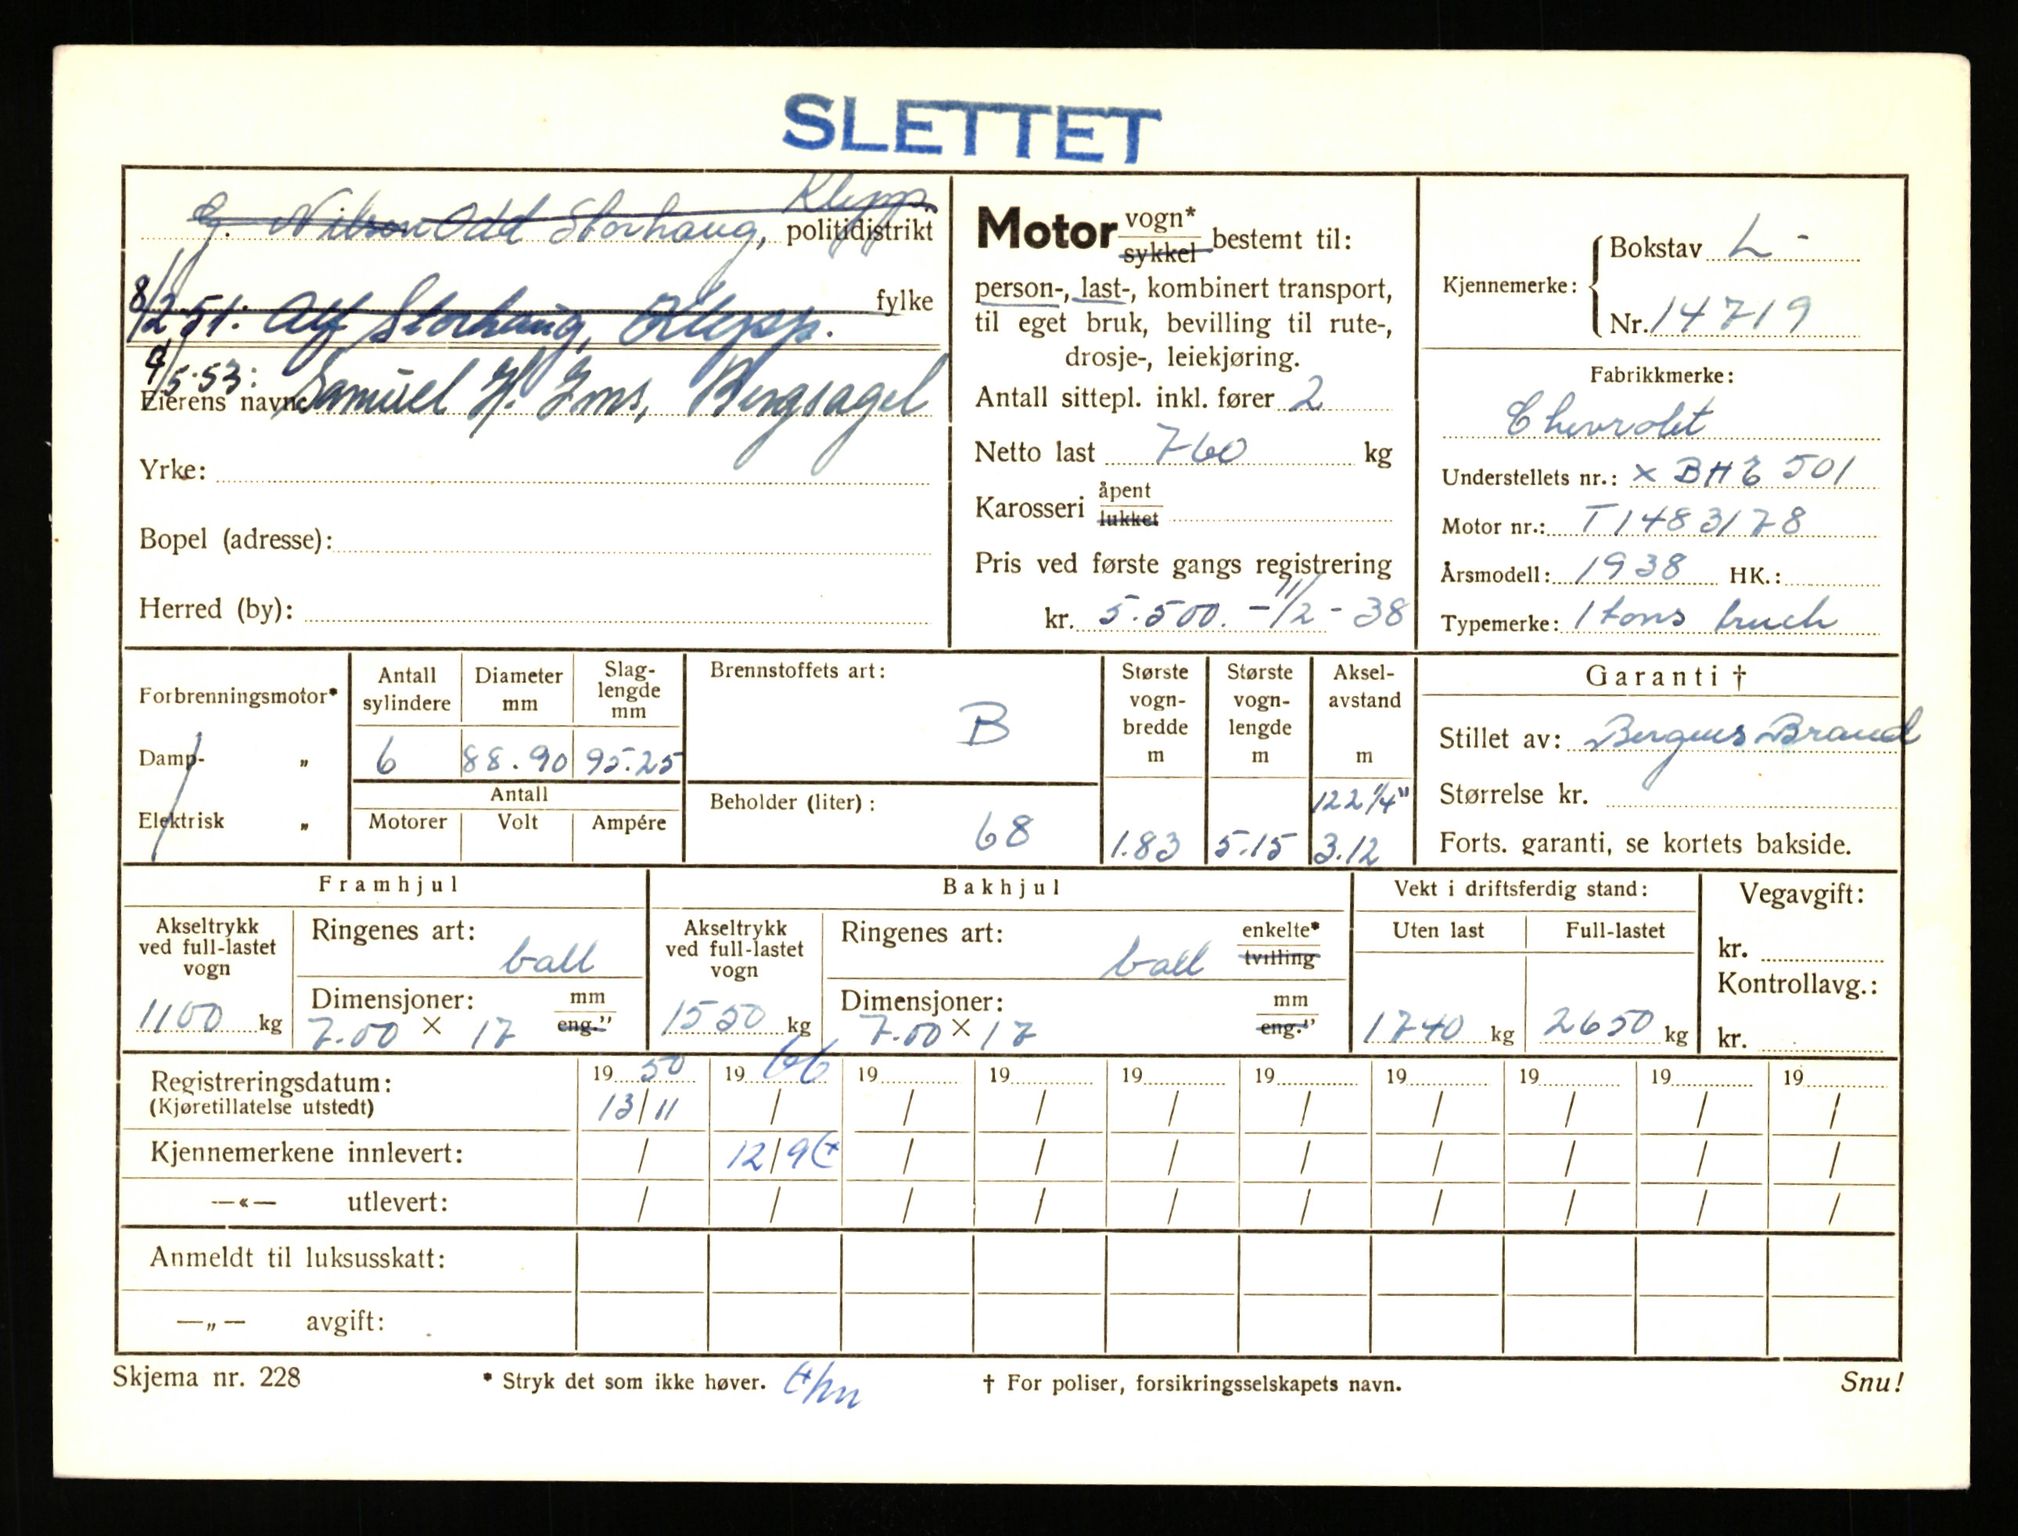 SLETTET
Nilson Odd Storhaug, Klepp. politidistrikt
8/2 51. Alf Storhaug, Klepp. fylke
9/5.53: Samuel H. Ims, Bergsagel
Eierens navn:
Yrke:
Bopel (adresse):
Herred (by):
Motor vogn* sykkel bestemt til:
person-, last-, kombinert transport,
til eget bruk, bevilling til rute-,
drosje-, leiekjøring.
Antall sittepl. inkl. fører 2
Netto last 760 kg
Karosseri åpent lukket
Pris ved første gangs registrering
kr. 5.500. - 11/2 - 38
Kjennemerke:
Bokstav L -
Nr. 14719
Fabrikkmerke:
Chevrolet
Understellets nr.: x BH 6 501
Motor nr.: T1483178
Årsmodell: 1938 HK.:
Typemerke: 1 tons truck
Forbrenningsmotor*
Damp- „
Elektrisk „
Antall sylindere
Diameter mm
Slag-lengde mm
6 88.90 95.25
Antall
Motorer Volt Ampére
Brennstoffets art:
B
Beholder (liter):
68
Største vogn-bredde m
1.83
Største vogn-lengde m
5.15
Aksel-avstand m
122 1/4"
3.12
Garanti †
Stillet av: Bergens Brand
Størrelse kr.
Forts. garanti, se kortets bakside.
Framhjul
Akseltrykk ved full-lastet vogn
1100 kg
Ringenes art: ball
Dimensjoner: mm eng."
7.00 × 17
Bakhjul
Akseltrykk ved full-lastet vogn
1550 kg
Ringenes art: ball enkelte* tvilling
Dimensjoner: mm eng."
7.00 × 17
Vekt i driftsferdig stand:
Uten last Full-lastet
1740 kg 2650 kg
Vegavgift:
kr.
Kontrollavg.:
kr.
Registreringsdatum: 19 50 19 66 19 19 19 19 19 19 19 19
(Kjøretillatelse utstedt) 13/11 / / / / / / / / /
Kjennemerkene innlevert: / 12/9 / / / / / / / /
—«— utlevert: / / / / / / / / / /
Anmeldt til luksusskatt:
—„— avgift:
Skjema nr. 228
* Stryk det som ikke høver.
† For poliser, forsikringsselskapets navn.
Snu!